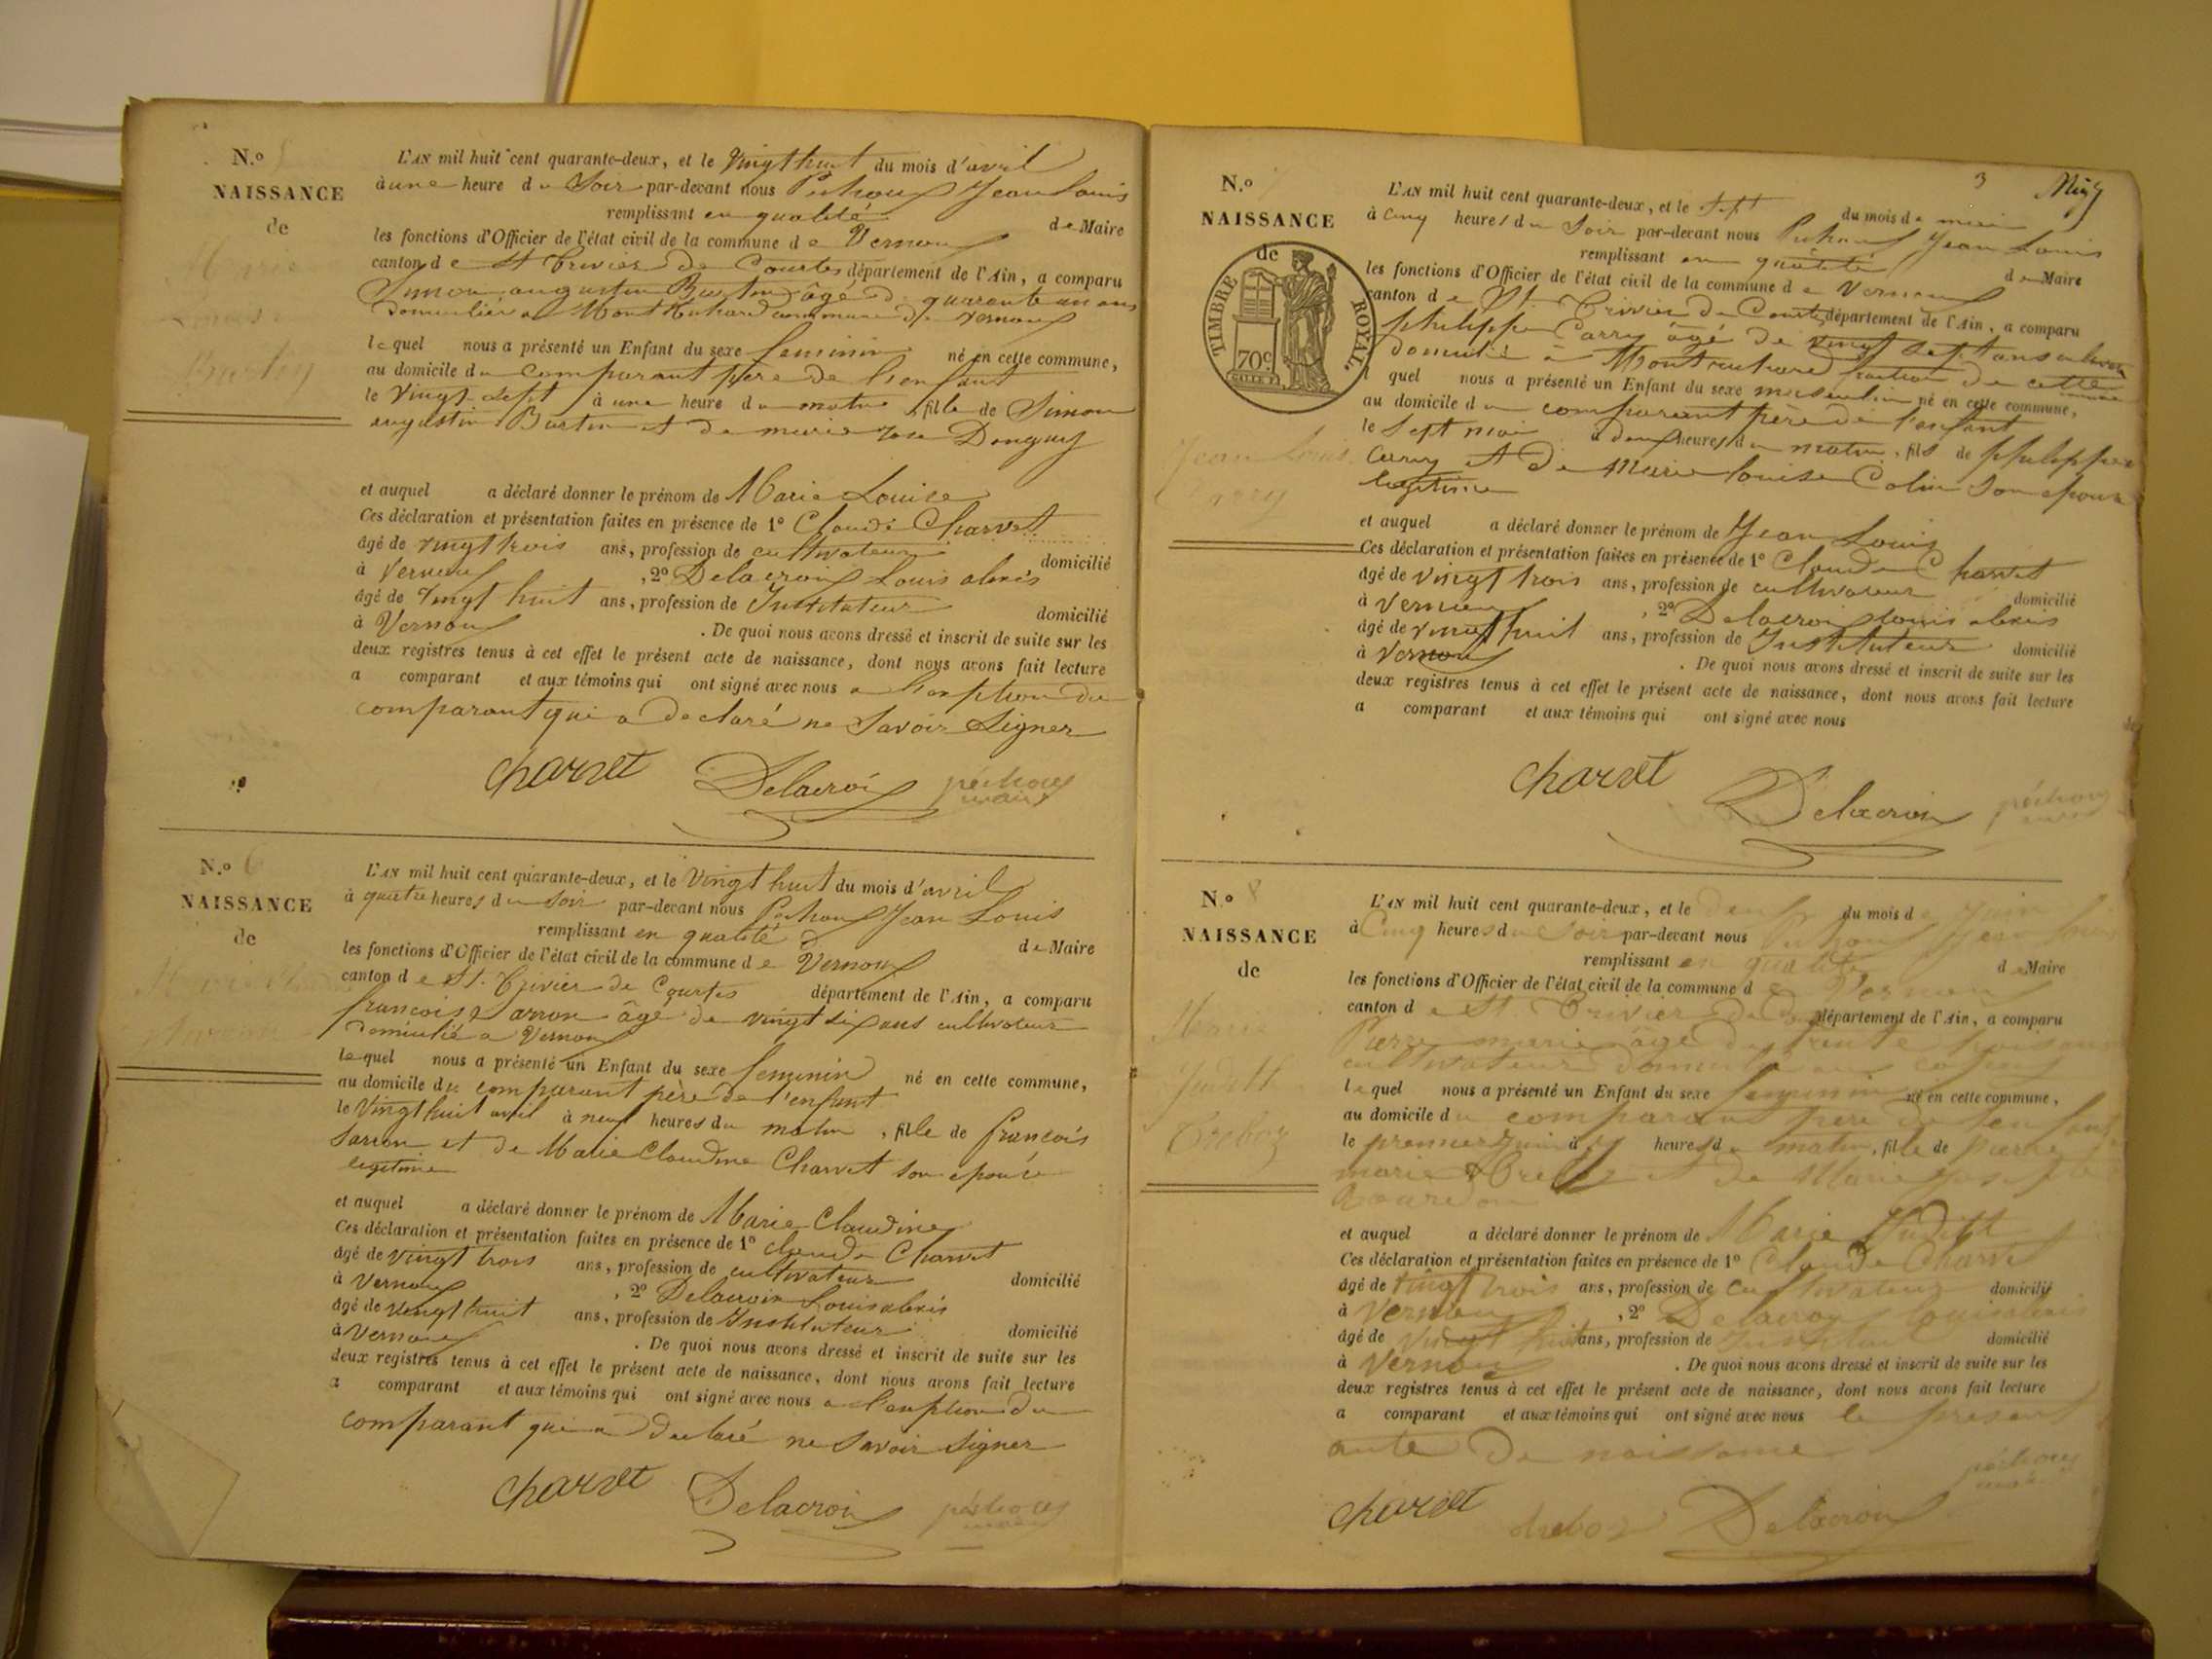 N.º
NAISSANCE
de
L'AN mil huit cent quarante-deux, et le Vingt huit du mois d'avril
à une heure du Soir par-devant nous Pochoux Jean Louis
remplissant en qualité de Maire
les fonctions d'Officier de l'état civil de la commune de Vernoux
canton de St Trivier de Courtes département de l'Ain, a comparu
Simon augustin âgé de quarante un ans
domicilié a commune de vernoux
lequel nous a présenté un Enfant du sexe feminin né en cette commune,
au domicile du comparant père de l'enfant
le Vingt sept à une heure du matin, fille de Simon
augustin et de marie
et auquel a déclaré donner le prénom de Marie Louise
Ces déclaration et présentation faites en présence de 1º Claude Charvet
âgé de vingt trois ans, profession de cultivateur domicilié
à Vernoux, 2º Delacroix Louis alexis
âgé de Vingt huit ans, profession de Instituteur domicilié
à Vernoux. De quoi nous avons dressé et inscrit de suite sur les
deux registres tenus à cet effet le présent acte de naissance, dont nous avons fait lecture
a comparant et aux témoins qui ont signé avec nous a l'exception du
comparant qui a declaré ne Savoir Signer
Charvet Delacroix
N.º 6
NAISSANCE
de
L'AN mil huit cent quarante-deux, et le Vingt huit du mois d'avril
à quatre heures du soir par-devant nous Pochoux Jean Louis
remplissant en qualité de Maire
les fonctions d'Officier de l'état civil de la commune de Vernoux
canton de St. Trivier de Courtes département de l'Ain, a comparu
francois âgé de vingt six ans cultivateur
domicilié a Vernoux
lequel nous a présenté un Enfant du sexe feminin né en cette commune,
au domicile du comparant père de l'enfant
le Vingt huit avril à neuf heures du matin, fille de francois
et de Marie Claudine Charvet son epouse
legitime
et auquel a déclaré donner le prénom de Marie Claudine
Ces déclaration et présentation faites en présence de 1º claude Charvet
âgé de vingt trois ans, profession de cultivateur domicilié
à Vernoux, 2º Delacroix Louis alexis
âgé de vingt huit ans, profession de Instituteur domicilié
à Vernoux. De quoi nous avons dressé et inscrit de suite sur les
deux registres tenus à cet effet le présent acte de naissance, dont nous avons fait lecture
a comparant et aux témoins qui ont signé avec nous a l'exception du
comparant qui a declaré ne Savoir Signer
Charvet Delacroix
3
N.º
NAISSANCE
de
TIMBRE ROYAL
70c
Jean Louis
Carry
L'AN mil huit cent quarante-deux, et le Sept du mois de mai
à cinq heures du Soir par-devant nous Pochoux Jean Louis
remplissant en qualité de Maire
les fonctions d'Officier de l'état civil de la commune de Vernoux
canton de St Trivier de Courtes département de l'Ain, a comparu
philippe Carry âgé de vingt sept ans
domicilié à de cette
lequel nous a présenté un Enfant du sexe masculin né en cette commune,
au domicile du comparant père de l'enfant
le Sept mai à deux heures du matin, fils de philippe
Carry et de Marie louise Colin son epouse
legitime
et auquel a déclaré donner le prénom de Jean Louis
Ces déclaration et présentation faites en présence de 1º Claude Charvet
âgé de vingt trois ans, profession de cultivateur domicilié
à Vernoux, 2º Delacroix Louis alexis
âgé de vingt huit ans, profession de Instituteur domicilié
à Vernoux. De quoi nous avons dressé et inscrit de suite sur les
deux registres tenus à cet effet le présent acte de naissance, dont nous avons fait lecture
a comparant et aux témoins qui ont signé avec nous
Charvet Delacroix
N.º 8
NAISSANCE
de
Marie
Judith
Treboz
L'AN mil huit cent quarante-deux, et le deux du mois de Juin
à Cinq heures du Soir par-devant nous Pochoux Jean Louis
remplissant en qualité de Maire
les fonctions d'Officier de l'état civil de la commune de Vernoux
canton de St Trivier de département de l'Ain, a comparu
Pierre marie âgé de trente trois ans
cultivateur domicilié
lequel nous a présenté un Enfant du sexe feminin né en cette commune,
au domicile du comparant père de l'enfant
le premier Juin à heures du matin, fille de pierre
marie Treboz et de Marie
et auquel a déclaré donner le prénom de Marie Judith
Ces déclaration et présentation faites en présence de 1º Claude Charvet
âgé de vingt trois ans, profession de cultivateur domicilié
à Vernoux, 2º Delacroix louis alexis
âgé de vingt huit ans, profession de domicilié
à Vernoux. De quoi nous avons dressé et inscrit de suite sur les
deux registres tenus à cet effet le présent acte de naissance, dont nous avons fait lecture
a comparant et aux témoins qui ont signé avec nous le present
acte de naissance
Charvet Delacroix